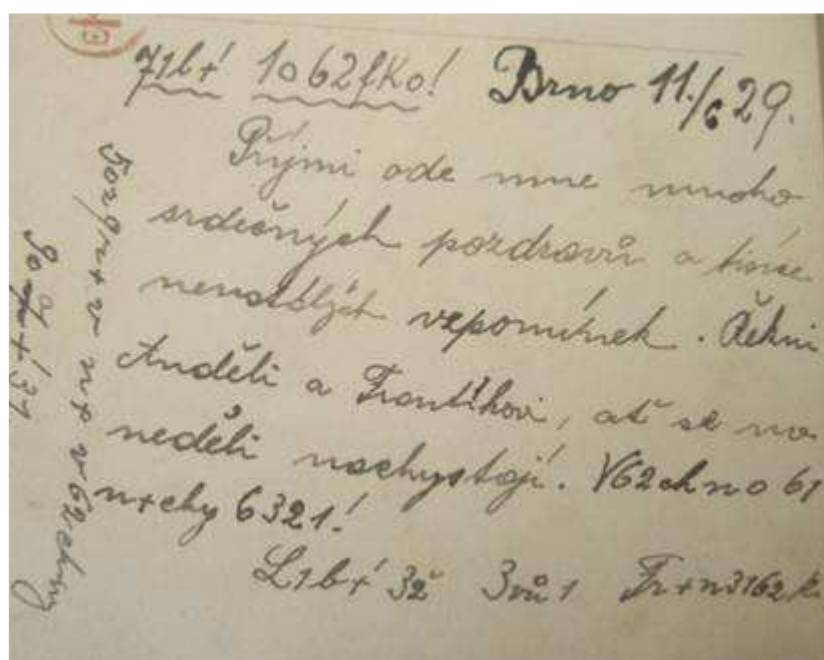 71b+́ 1o62fko! Brno 11./6 29.
Přijmi ode mne mnoho
srdečných pozdravů a tisíce
neustálých vzpomínek. Řekni
Anděli a Frantíkovi, ať se na
neděli nachystají. V62chno 61
n+chy 6321!
L1b+́ 3ě 3vů1 Fr+n3162k
n+ v62chny